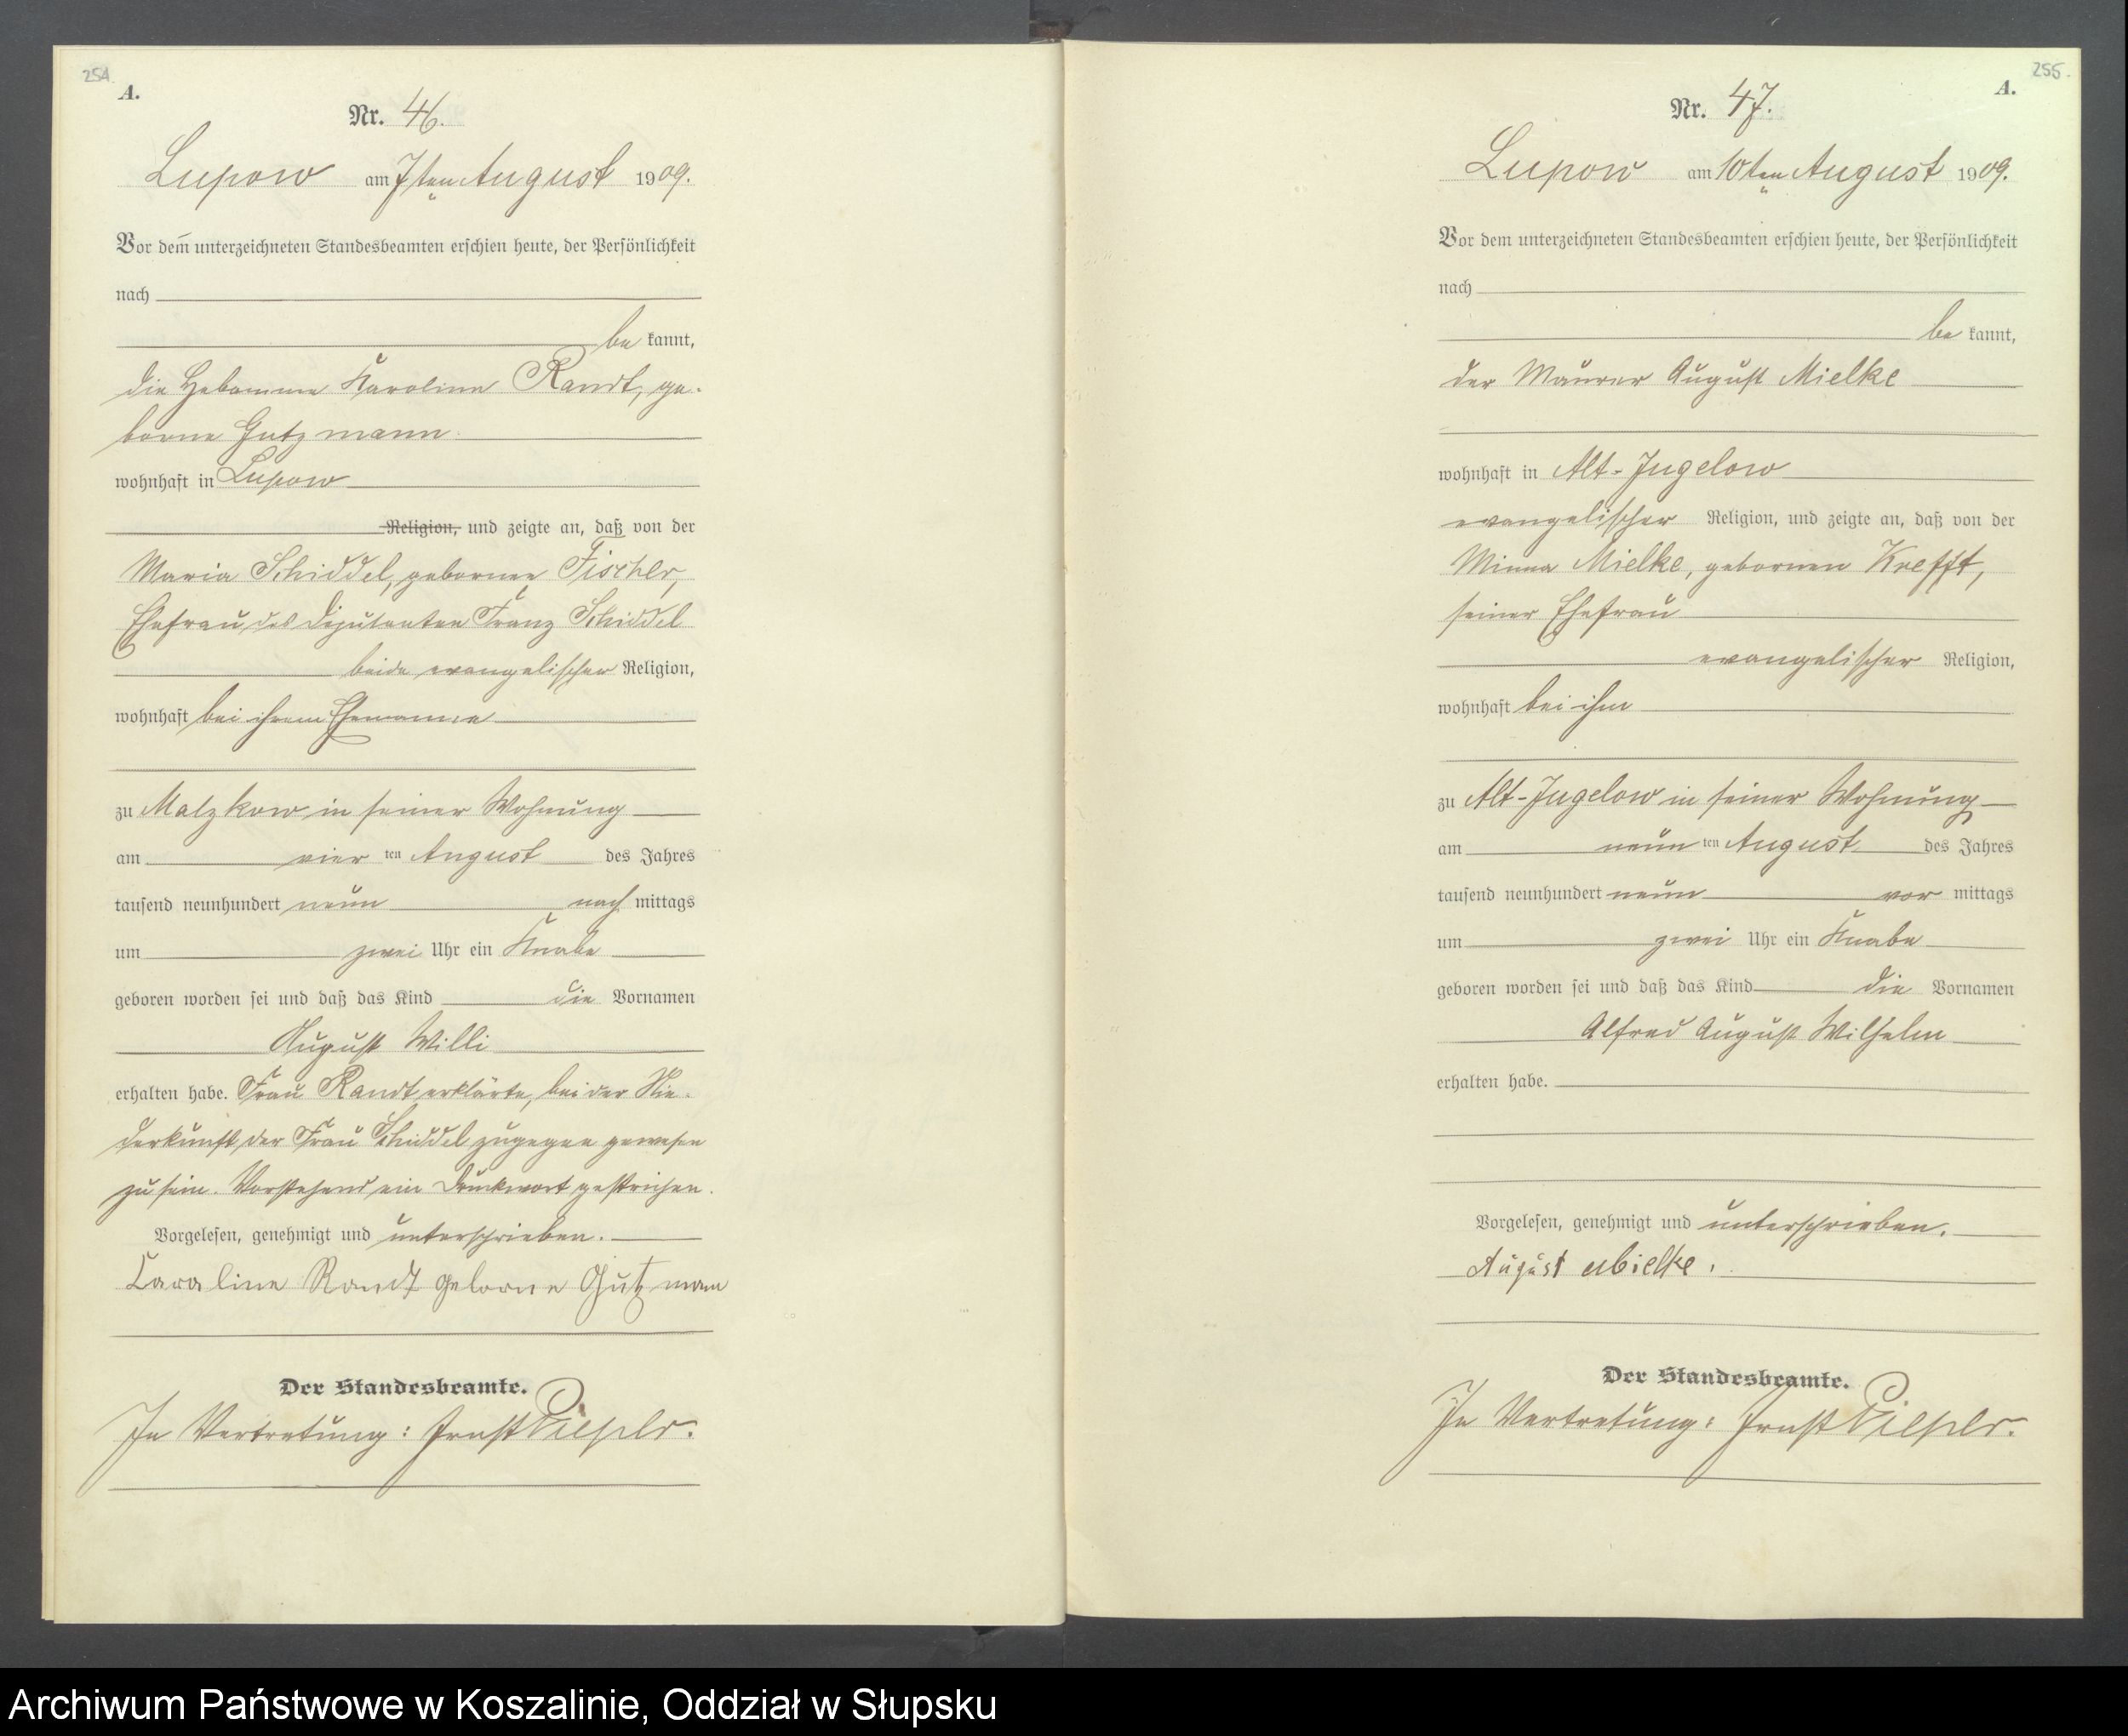 254.
A.
Nr. 46.
Lupow am 7ten August 1909.
Vor dem unterzeichneten Standesbeamten erschien heute, der Persönlichkeit
nach
bekannt,
die Hebamme Karoline Randt, ge-
borne Gutzmann
wohnhaft in Lupow
Religion, und zeigte an, daß von der
Maria Schiddel, gebornen Fischer,
Ehefrau des Deputanten Franz Schiddel
beide evangelischer Religion,
wohnhaft bei ihrem Ehemanne
zu Malzkow in seiner Wohnung
am vier ten August des Jahres
tausend neunhundert neun nach mittags
um zwei Uhr ein Knabe
geboren worden sei und daß das Kind die Vornamen
August Willi
erhalten habe. Frau Randt erklärte, bei der Nie-
derkunft der Frau Schiddel zugegen gewesen
zu sein. Vorstehend ein Druckwort gestrichen.
Vorgelesen, genehmigt und unterschrieben.
Caroline Randt geborne Gutzmann
Der Standesbeamte.
In Vertretung: Ernst
255.
A.
Nr. 47.
Lupow am 10ten August 1909.
Vor dem unterzeichneten Standesbeamten erschien heute, der Persönlichkeit
nach
bekannt,
der Maurer August Mielke
wohnhaft in Alt-Jugelow
evangelischer Religion, und zeigte an, daß von der
Minna Mielke, gebornen Krefft,
seiner Ehefrau
evangelischer Religion,
wohnhaft bei ihm
zu Alt-Jugelow in seiner Wohnung
am neun ten August des Jahres
tausend neunhundert neun vor mittags
um zwei Uhr ein Knabe
geboren worden sei und daß das Kind die Vornamen
Alfred August Wilhelm
erhalten habe.
Vorgelesen, genehmigt und unterschrieben.
August Mielke.
Der Standesbeamte.
In Vertretung: Ernst
Archiwum Państwowe w Koszalinie, Oddział w Słupsku